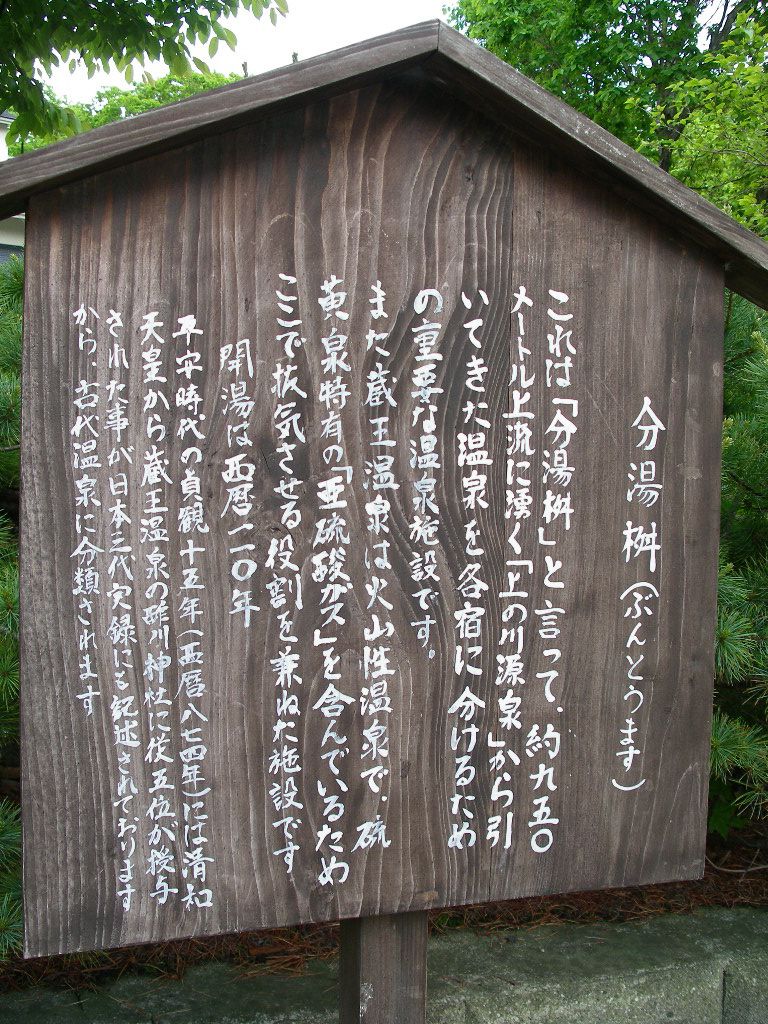 分湯桝(ぶんとうます)
これは「分湯桝」と言って、約九五〇
メートル上流に湧く「上の川源泉」から引
いてきた温泉を各宿に分けるため
の重要な温泉施設です。
また蔵王温泉は火山性温泉で、硫
黄泉特有の「亜硫酸ガス」を含んでいるため
ここで抜気させる役割を兼ねた施設です
開湯は西暦一一〇年
平安時代の貞観十五年(西暦八七四年)には清和
天皇から蔵王温泉の酢川神社に従五位が授与
された事が日本三代実録にも記述されております
から、古代温泉に分類されます